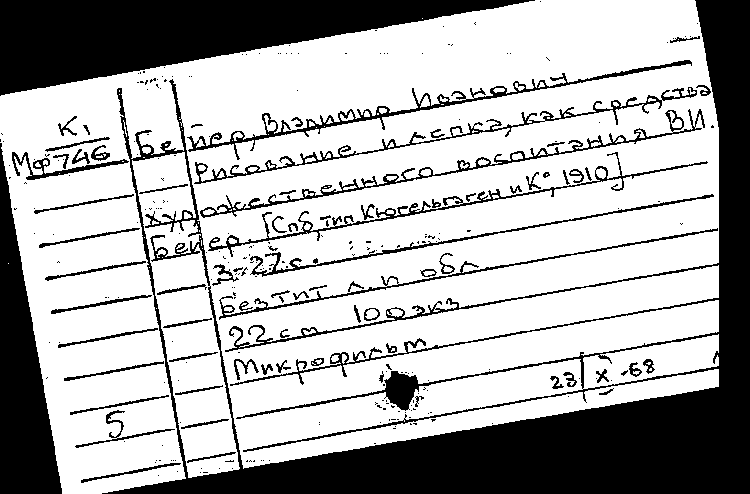 К1
Мф746
Бейер, Владимир Иванович.
Рисование и лепка, как средства
художественного воспитания В.И.
Бейер. [Спб, тип. Кюгельгэген и К°, 1910].
3-27 с.
Без тит л. и обл
22 см 100 экз
Микрофильм.
23 X -68
5